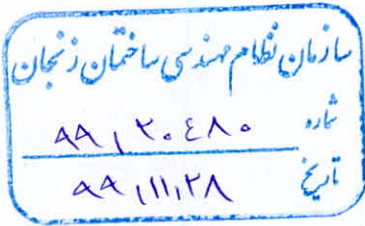 سازمان نظام مهندسی ساختمان زنجان
شماره ۹۹,۲۰۴۸۰
تاریخ ۹۹,۱۱,۲۸